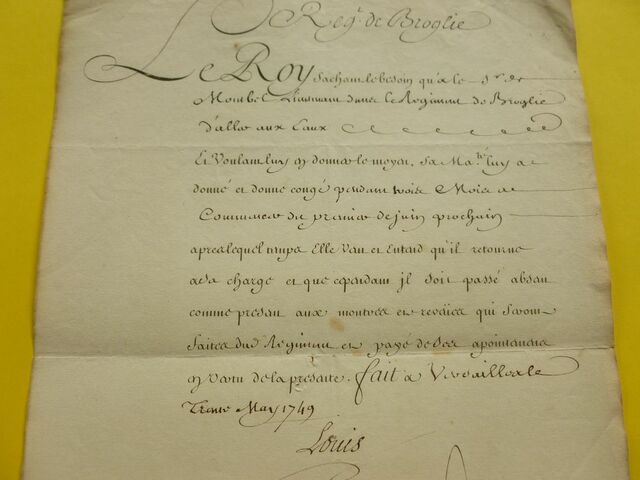 Reg.t de Broglie
Le Roy sachant le besoin qu'a le S.r de
Monbel Lieutenant dans le Regiment de Broglie
d'aller aux Eaux
Et Voulant luy en donner le moyen, Sa Ma.té luy a
donné et donne congé pendant trois Mois a
Commencer du premier de juin prochain
apres lequel temps Elle Veut et Entend qu'il retourne
a sa charge et que cependant jl soit passé absent
comme present aux montres et reveües qui seront
faites dud. Regiment et payé de ses apointemens
en vertu de la presente. fait a Versailles le
Trente May 1749
Louis